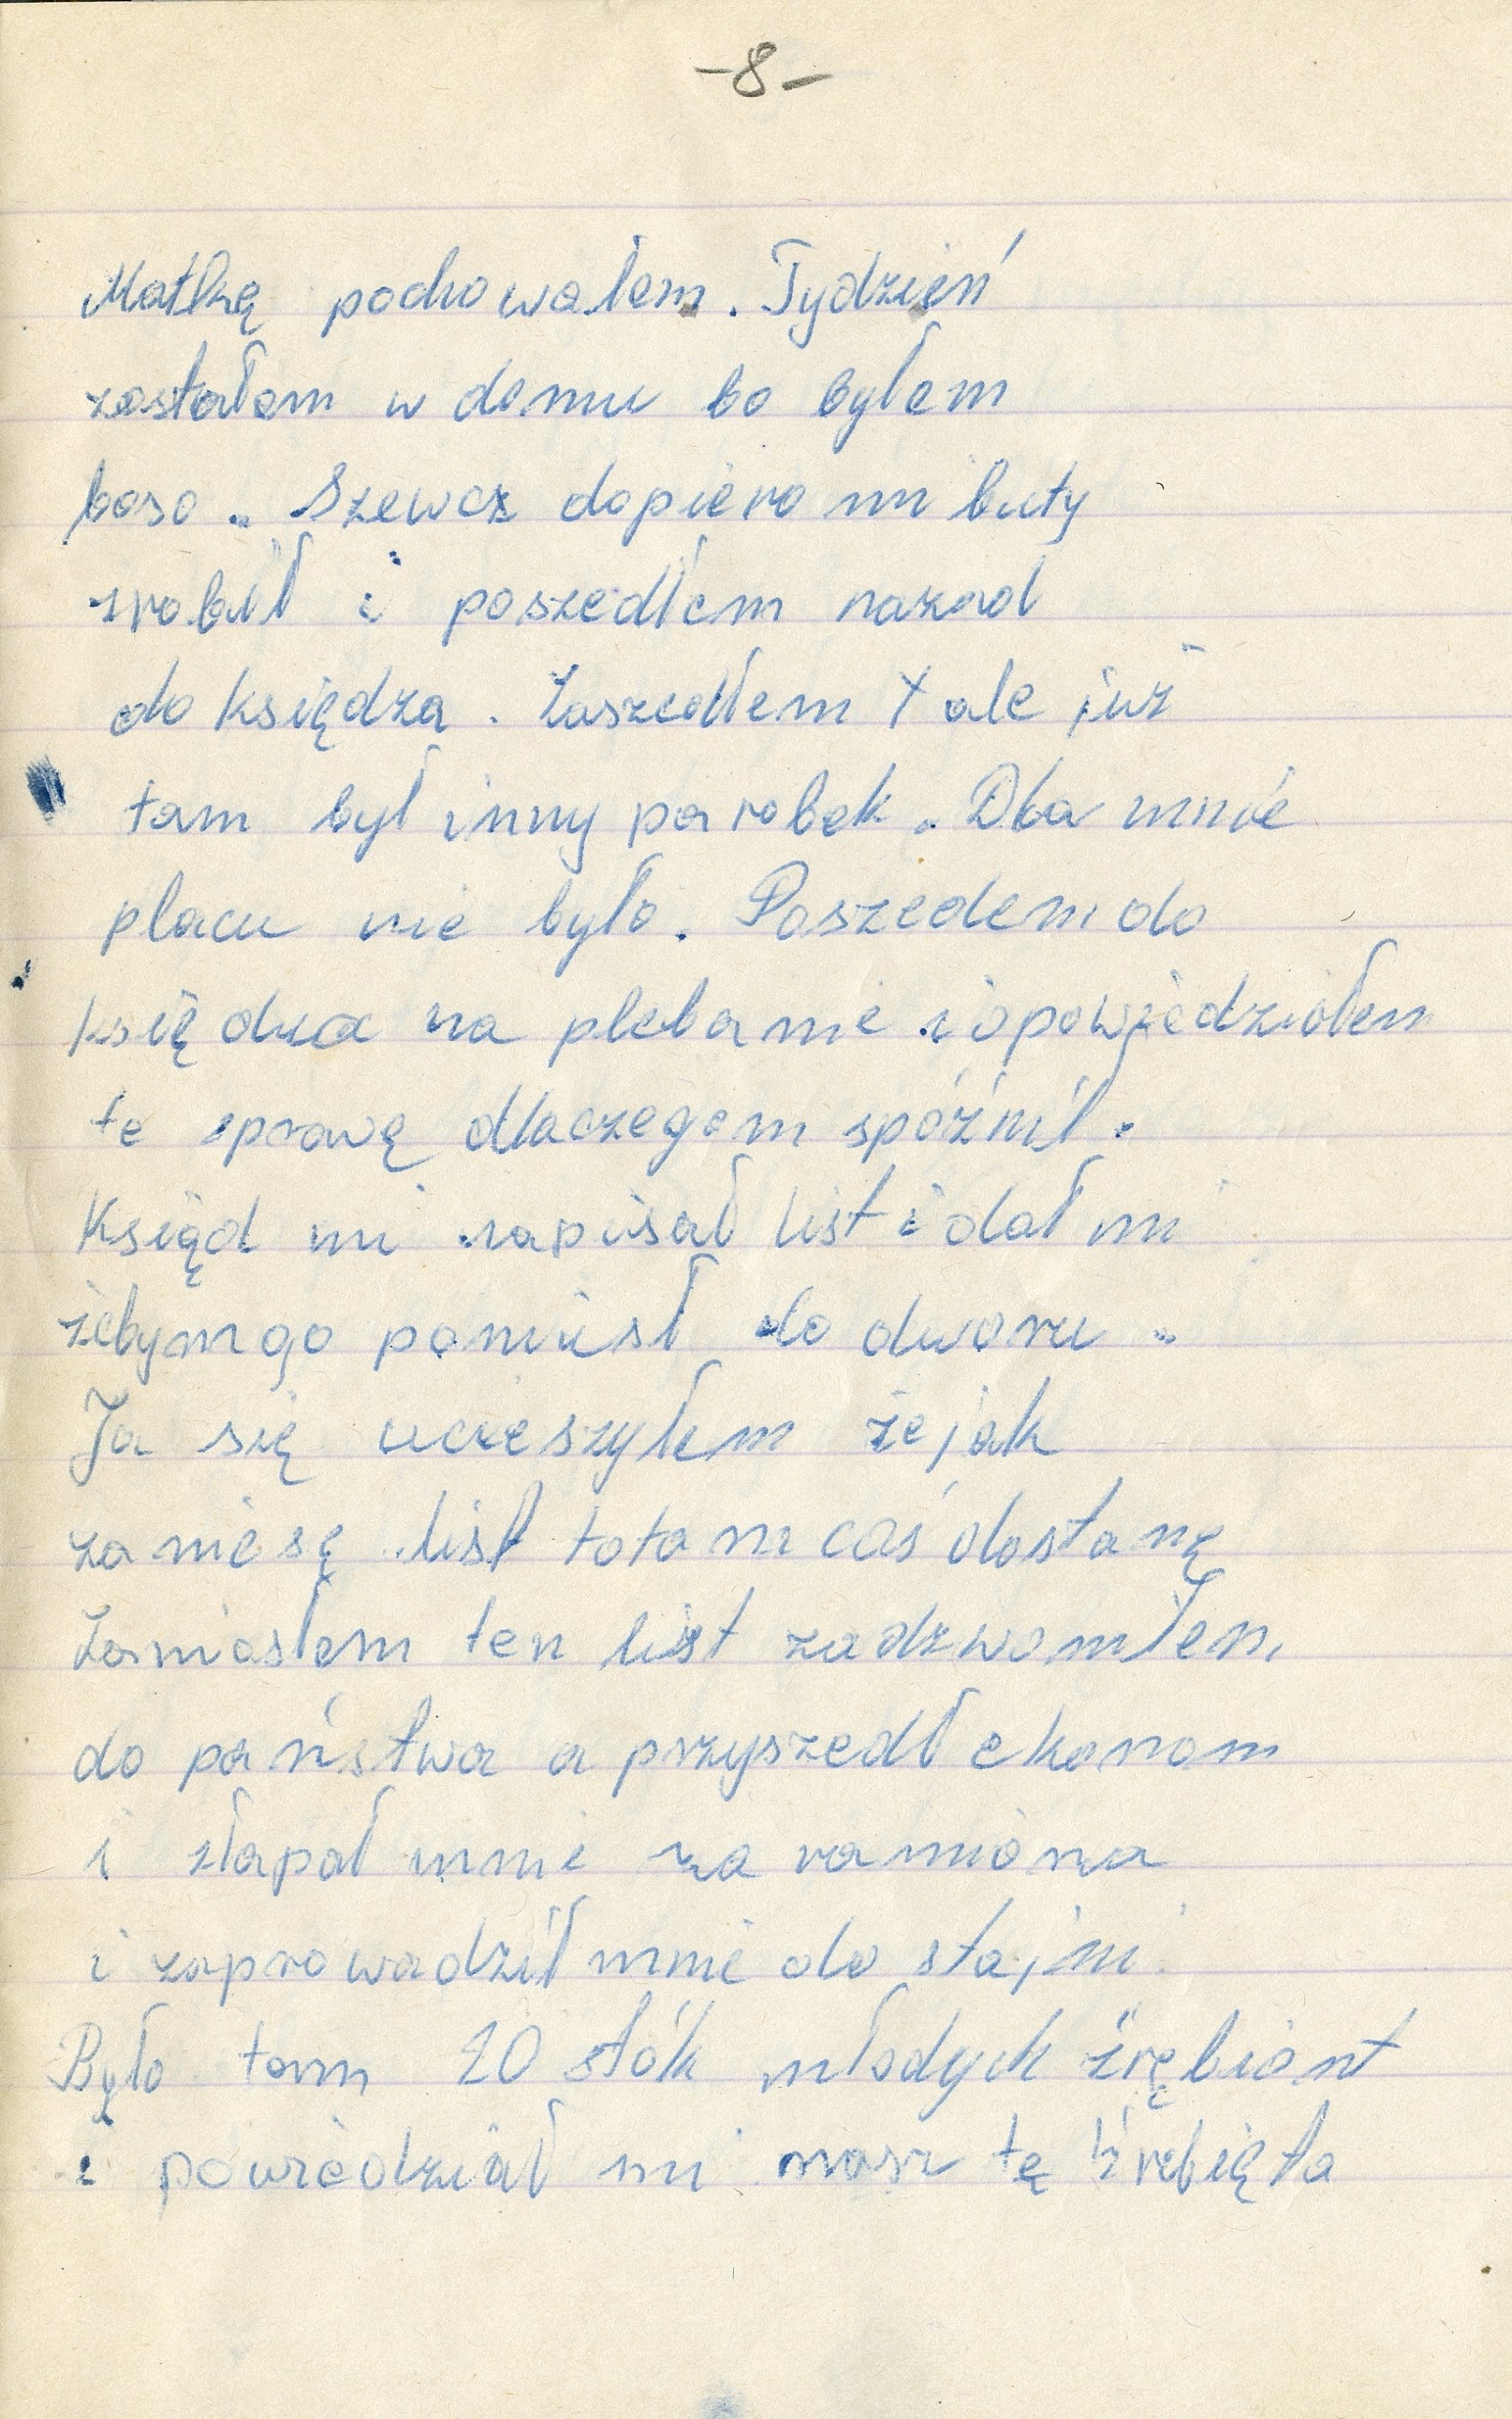 -8-
Matkę pochowałem. Tydzień
zostałem w domu bo byłem
boso. Szewcz dopiero mi buty
zrobił i poszedłem nazad
do księdza. Zaszedłem ale już
tam był inny parobek. Dla mnie
placu nie było. Poszedem do
księdza na plebanie i opowiedziołem
te sprawę dlaczegom spóźnił.
Ksiąd mi napisał list i dał mi
żebym go poniusł do dworu.
Ja się ucieszyłem że jak
zaniesę list to tam coś dostanę
Zaniosłem ten list zadzwoniłem
do państwa a przyszedł ekonom
i złapał mnie za ramiona
i zaprowadził mnie do stajni.
Było tam 20 stók młodych źrębiont
i powiedział mi masz tę źrebięta